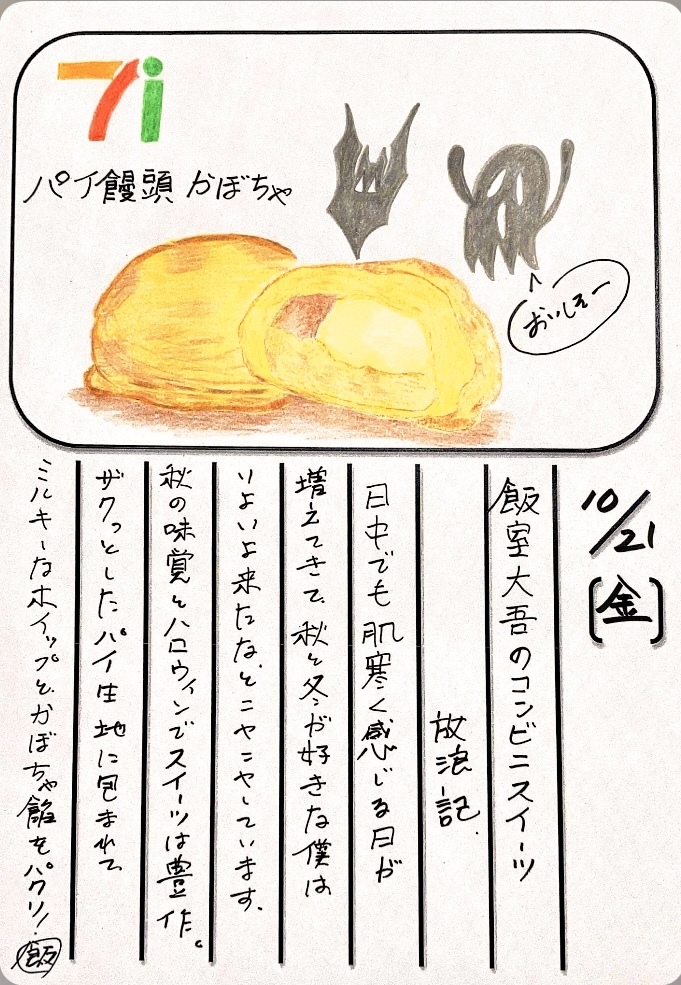 7i
パイ饅頭 かぼちゃ
おいしそー
10/21
[金]
飯室大吾のコンビニスイーツ
放浪記.
日中でも肌寒く感じる日が
増えてきて、秋と冬が好きな僕は
いよいよ来たな、とニヤニヤしています.
秋の味覚とハロウィンでスイーツは豊作。
ザクっとしたパイ生地に包まれて
ミルキーなホイップと、かぼちゃ餡をパクリ!
飯